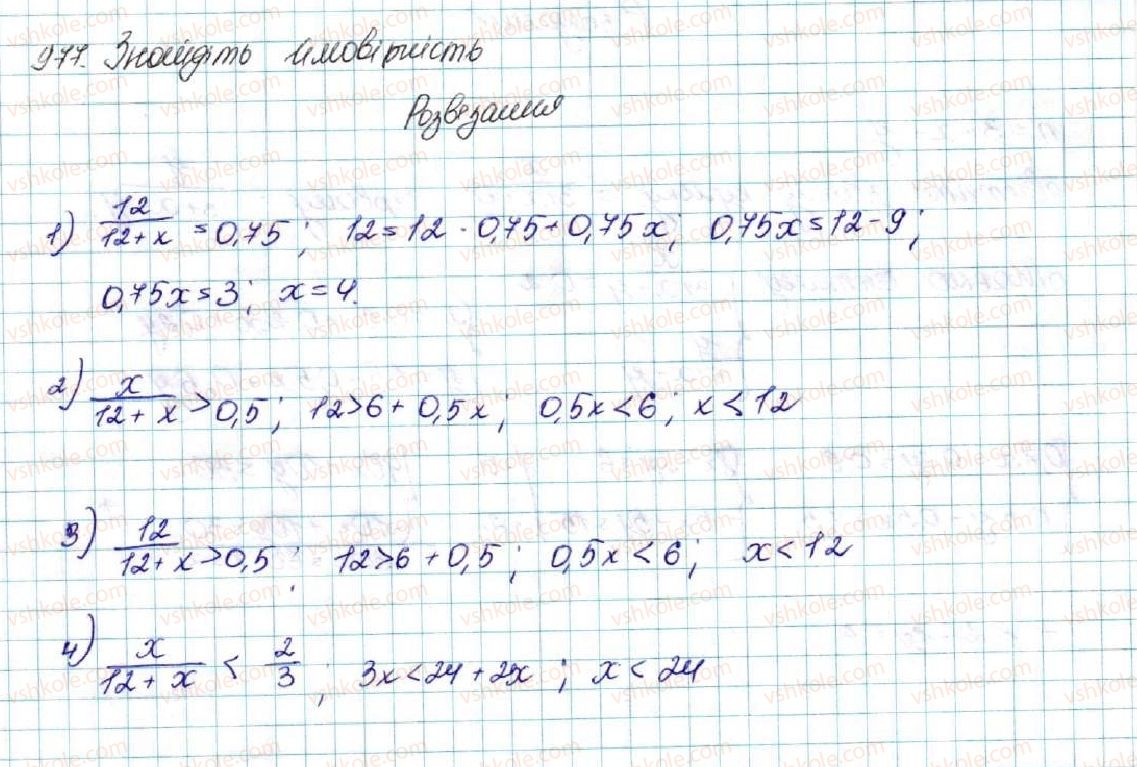 977. Знайдіть імовірність
Розвезання
1) 12/(12+x) = 0,75; 12 = 12 · 0,75 + 0,75x; 0,75x = 12 - 9;
0,75x = 3; x = 4.
2) x/(12+x) > 0,5; 12 > 6 + 0,5x; 0,5x < 6; x < 12
3) 12/(12+x) > 0,5; 12 > 6 + 0,5; 0,5x < 6; x < 12
4) x/(12+x) < 2/3; 3x < 24 + 2x; x < 24
vshkole.com